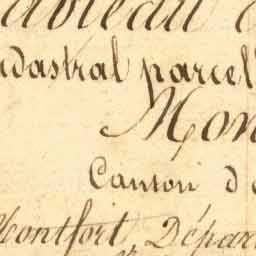 ableau d
adastral parcel
Mon
Canton d
Montfort, Dépar